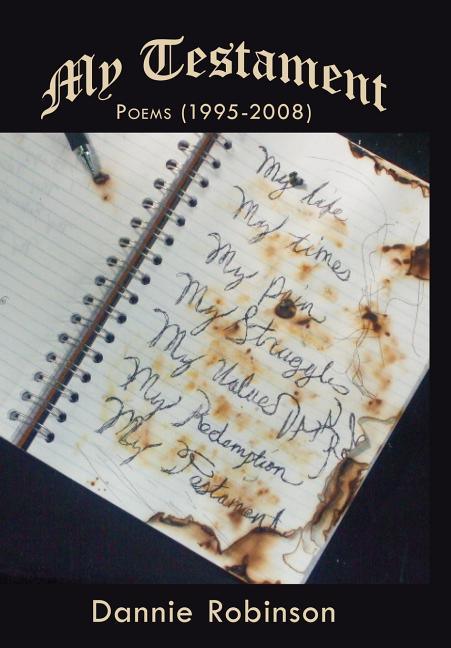 My Testament
Poems (1995-2008)
My life
My times
My pain
My Struggles
My Values
My Redemption
My Testament
Dannie Robinson